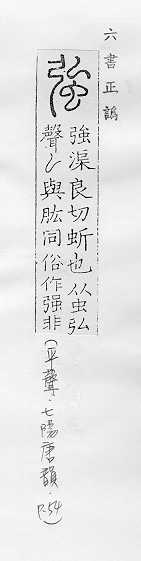 六書正譌
強
強渠良切蚚也从虫弘
聲厶與肱同俗作强非
(平聲.七陽唐韻.P.54)